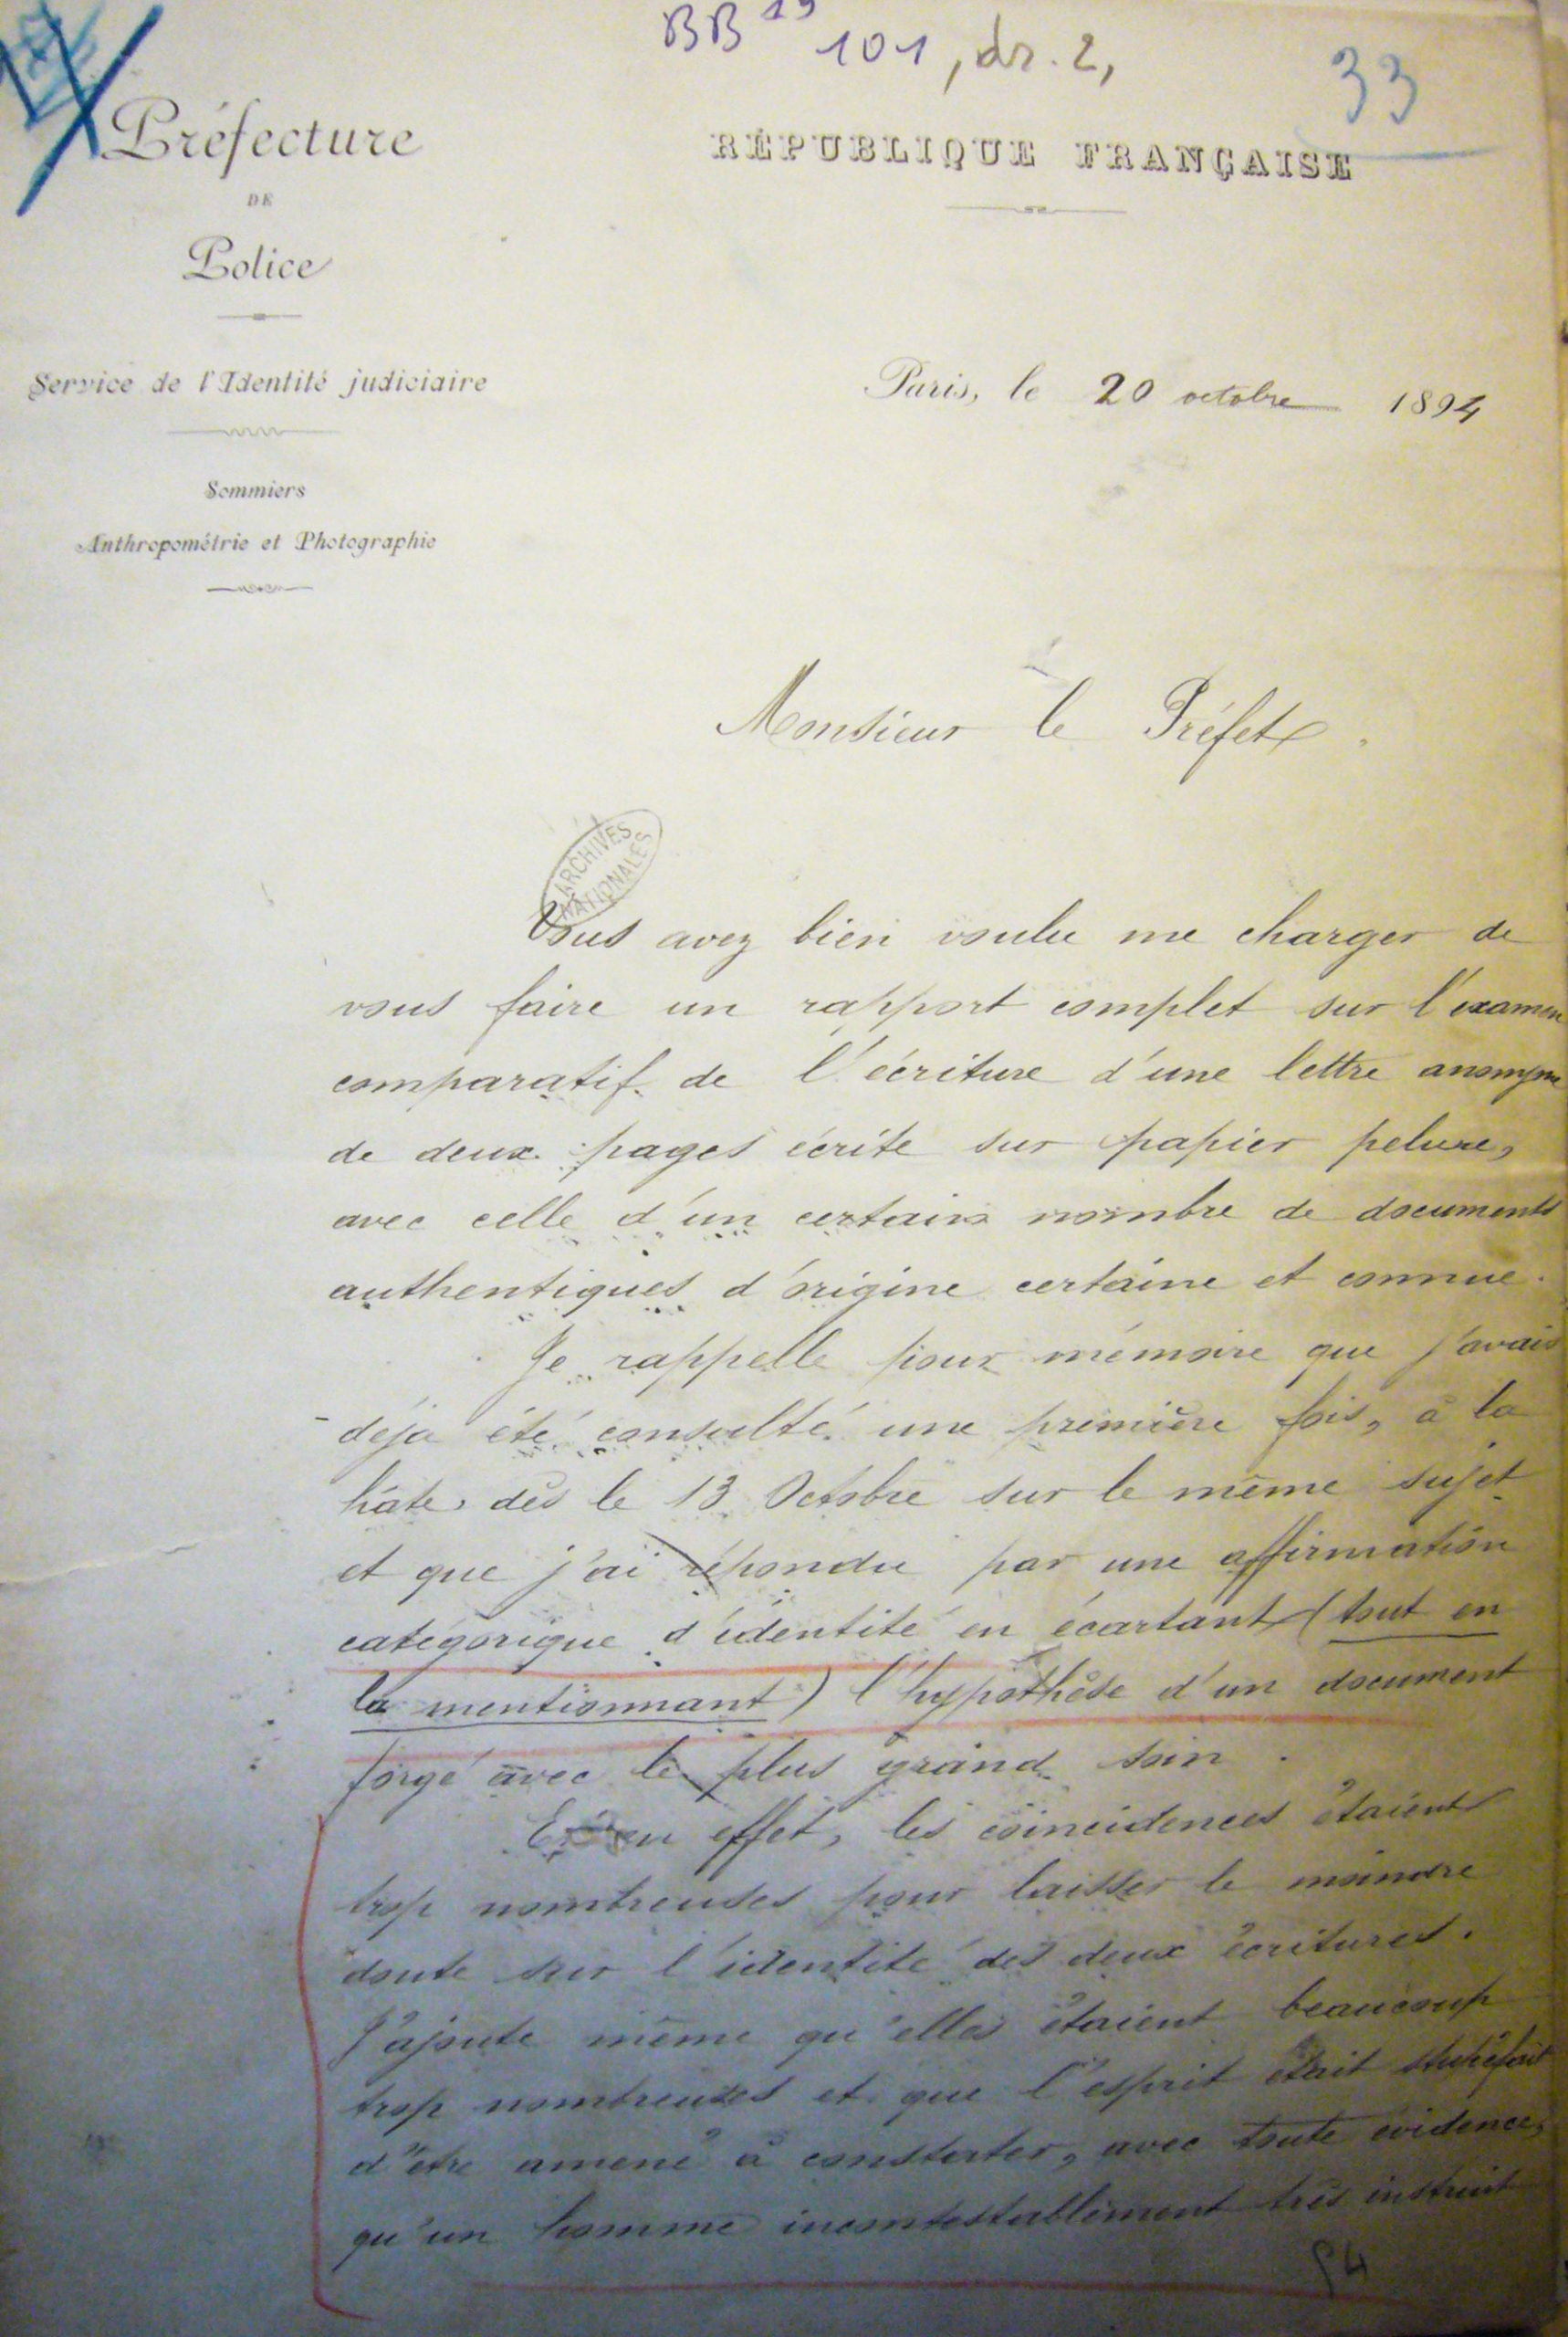 BB 19 101, dr. 2,
33
Préfecture
DE
Police
RÉPUBLIQUE FRANÇAISE
Service de l'Identité judiciaire
Paris, le 20 octobre 1894
Sommiers
Anthropométrie et Photographie
Monsieur le Préfet.
ARCHIVES NATIONALES
Vous avez bien voulu me charger de
vous faire un rapport complet sur l'examen
comparatif de l'écriture d'une lettre anonyme
de deux pages écrite sur papier pelure,
avec celle d'un certain nombre de documents
authentiques d'origine certaine et connue.
Je rappelle pour mémoire que j'avais
déja été consulté une première fois, à la
hâte, dès le 13 Octobre sur le même sujet
et que j'ai répondu par une affirmation
catégorique d'identité en écartant (tout en
la mentionnant) l'hypothèse d'un document
forgé avec le plus grand soin.
en effet, les coincidences étaient
trop nombreuses pour laisser le moindre
doute sur l'identité des deux écritures.
J'ajoute même qu'elles étaient beaucoup
trop nombreuses et que l'esprit était stupéfait
d'être amené à constater, avec toute évidence,
qu'un homme incontestablement très instruit
54